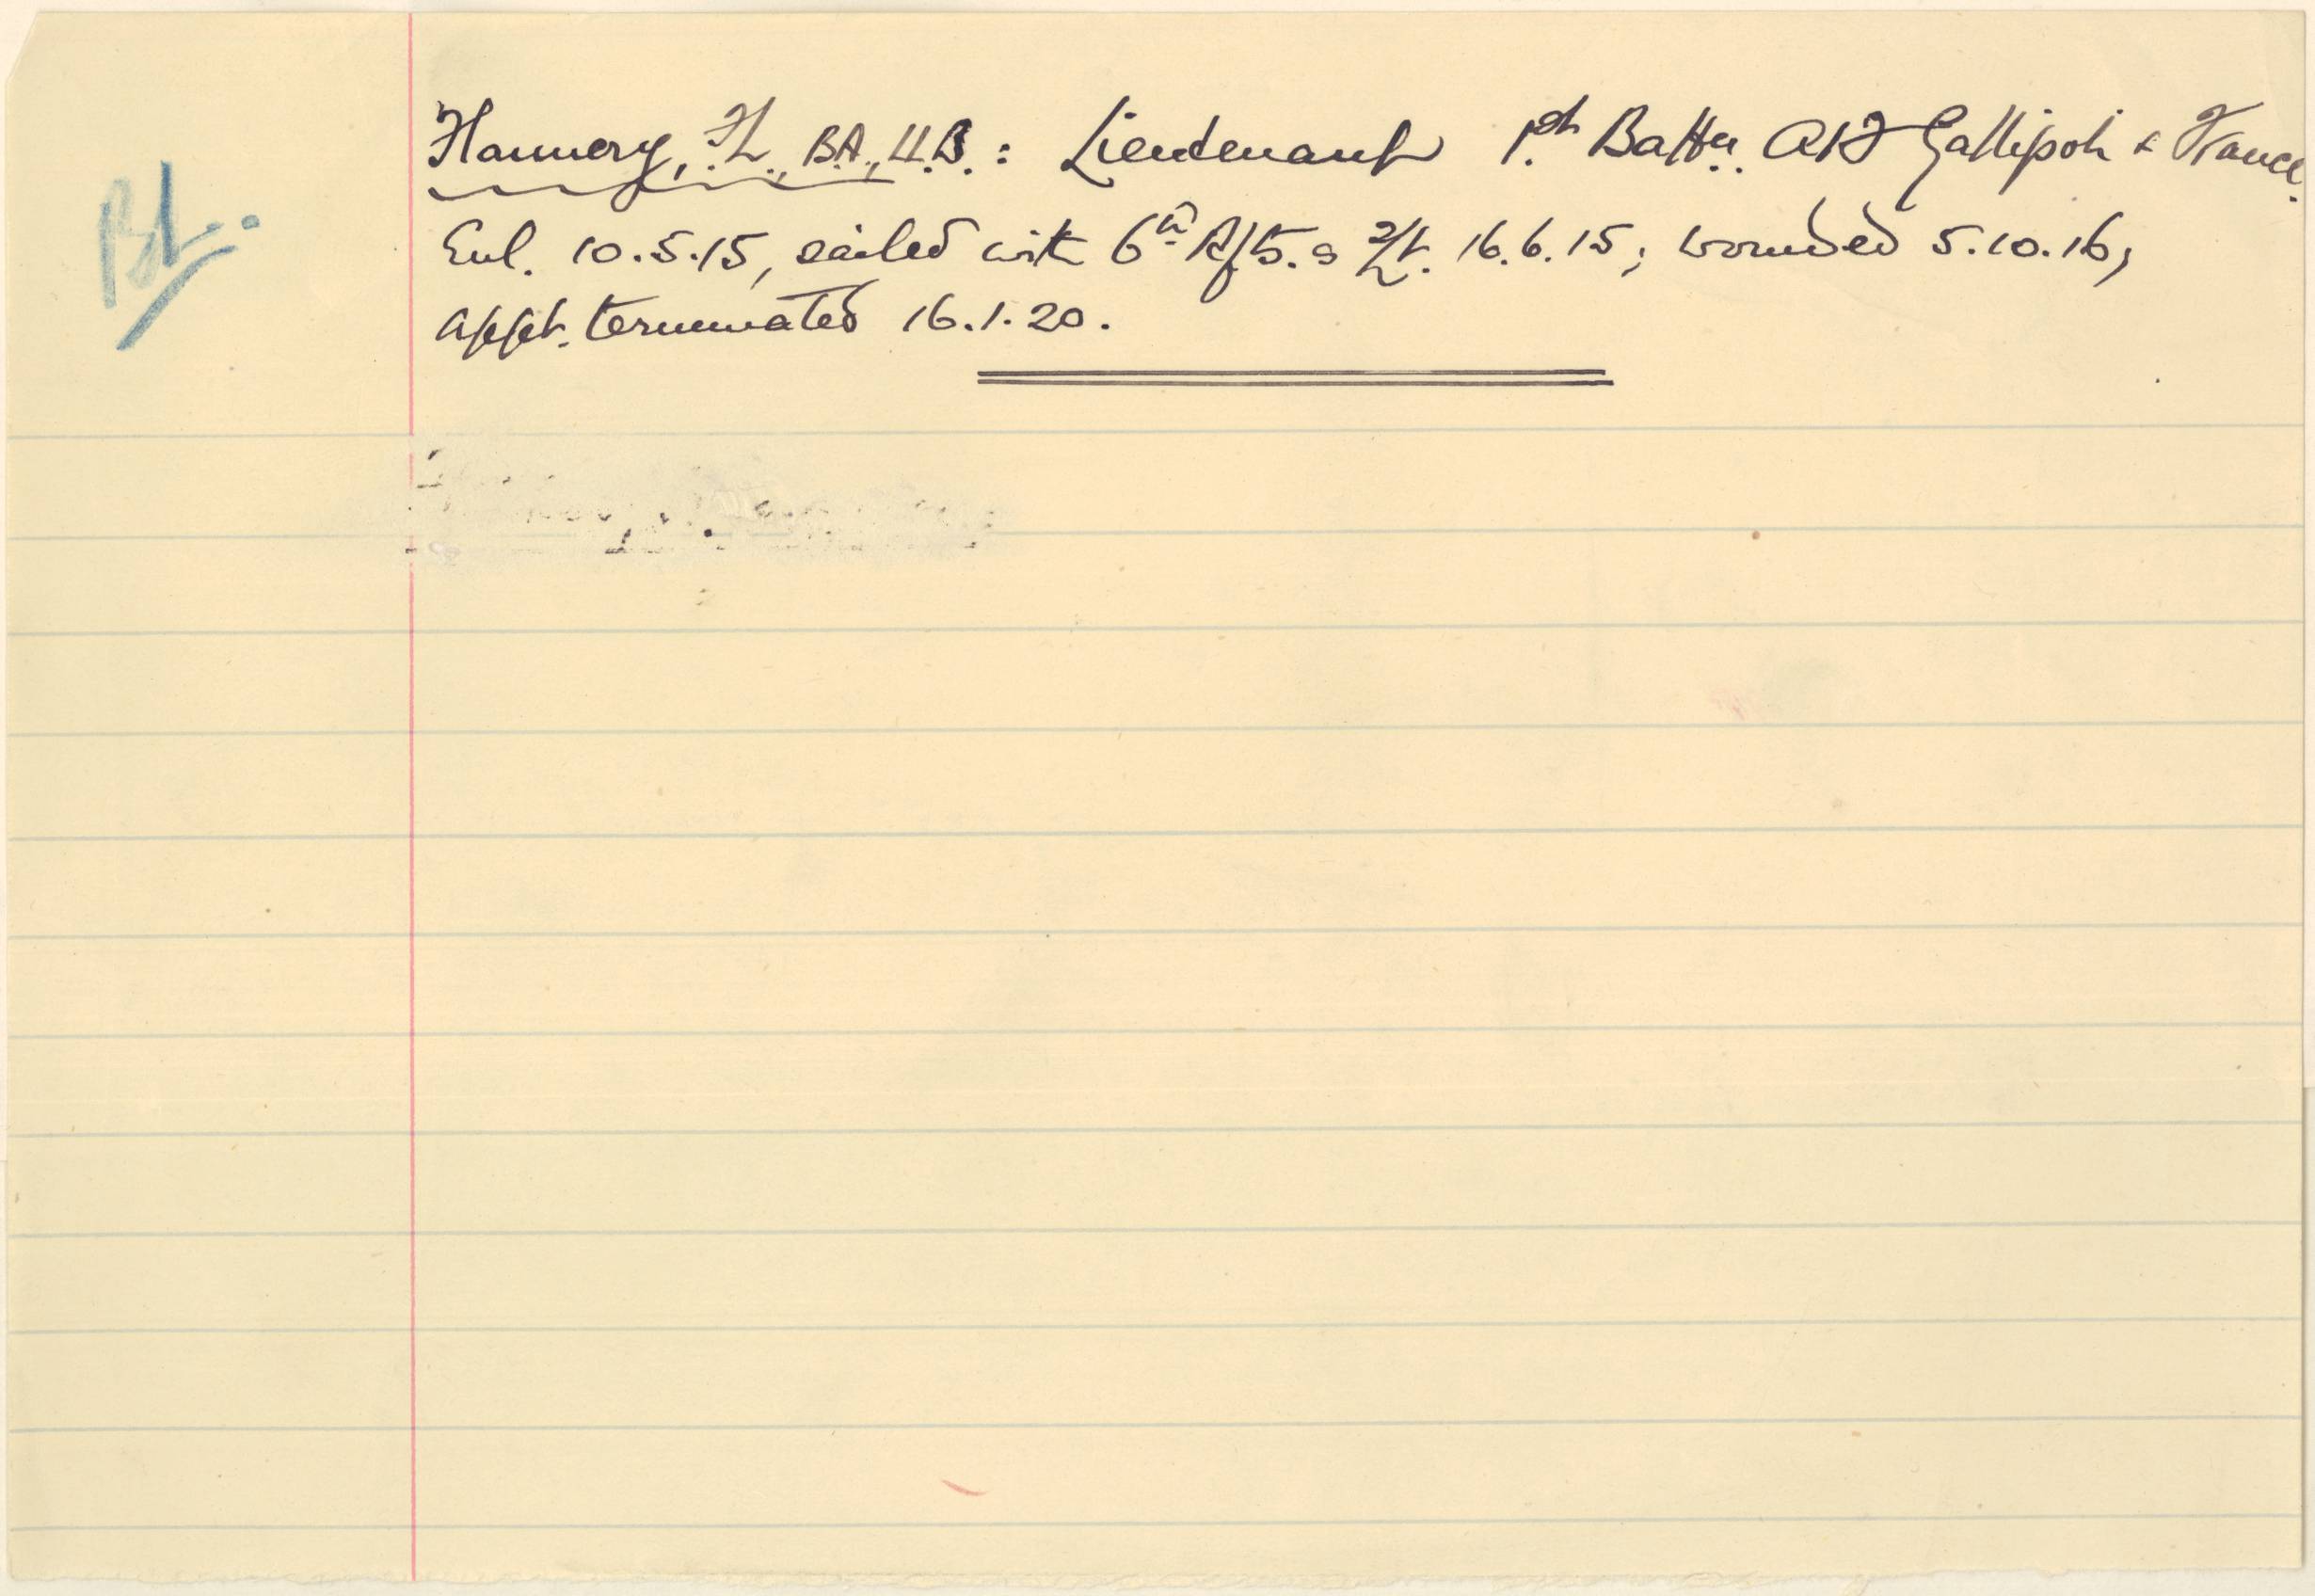 Flannery, F.L., B.A., LL.B. : Lieutenant 1st Battn. AIF Gallipoli & France.
Enl. 10.5.15, sailed with 6th Rfts. as 2/Lt. 16.6.15; wounded 5.10.16;
appt. terminated 16.1.20.